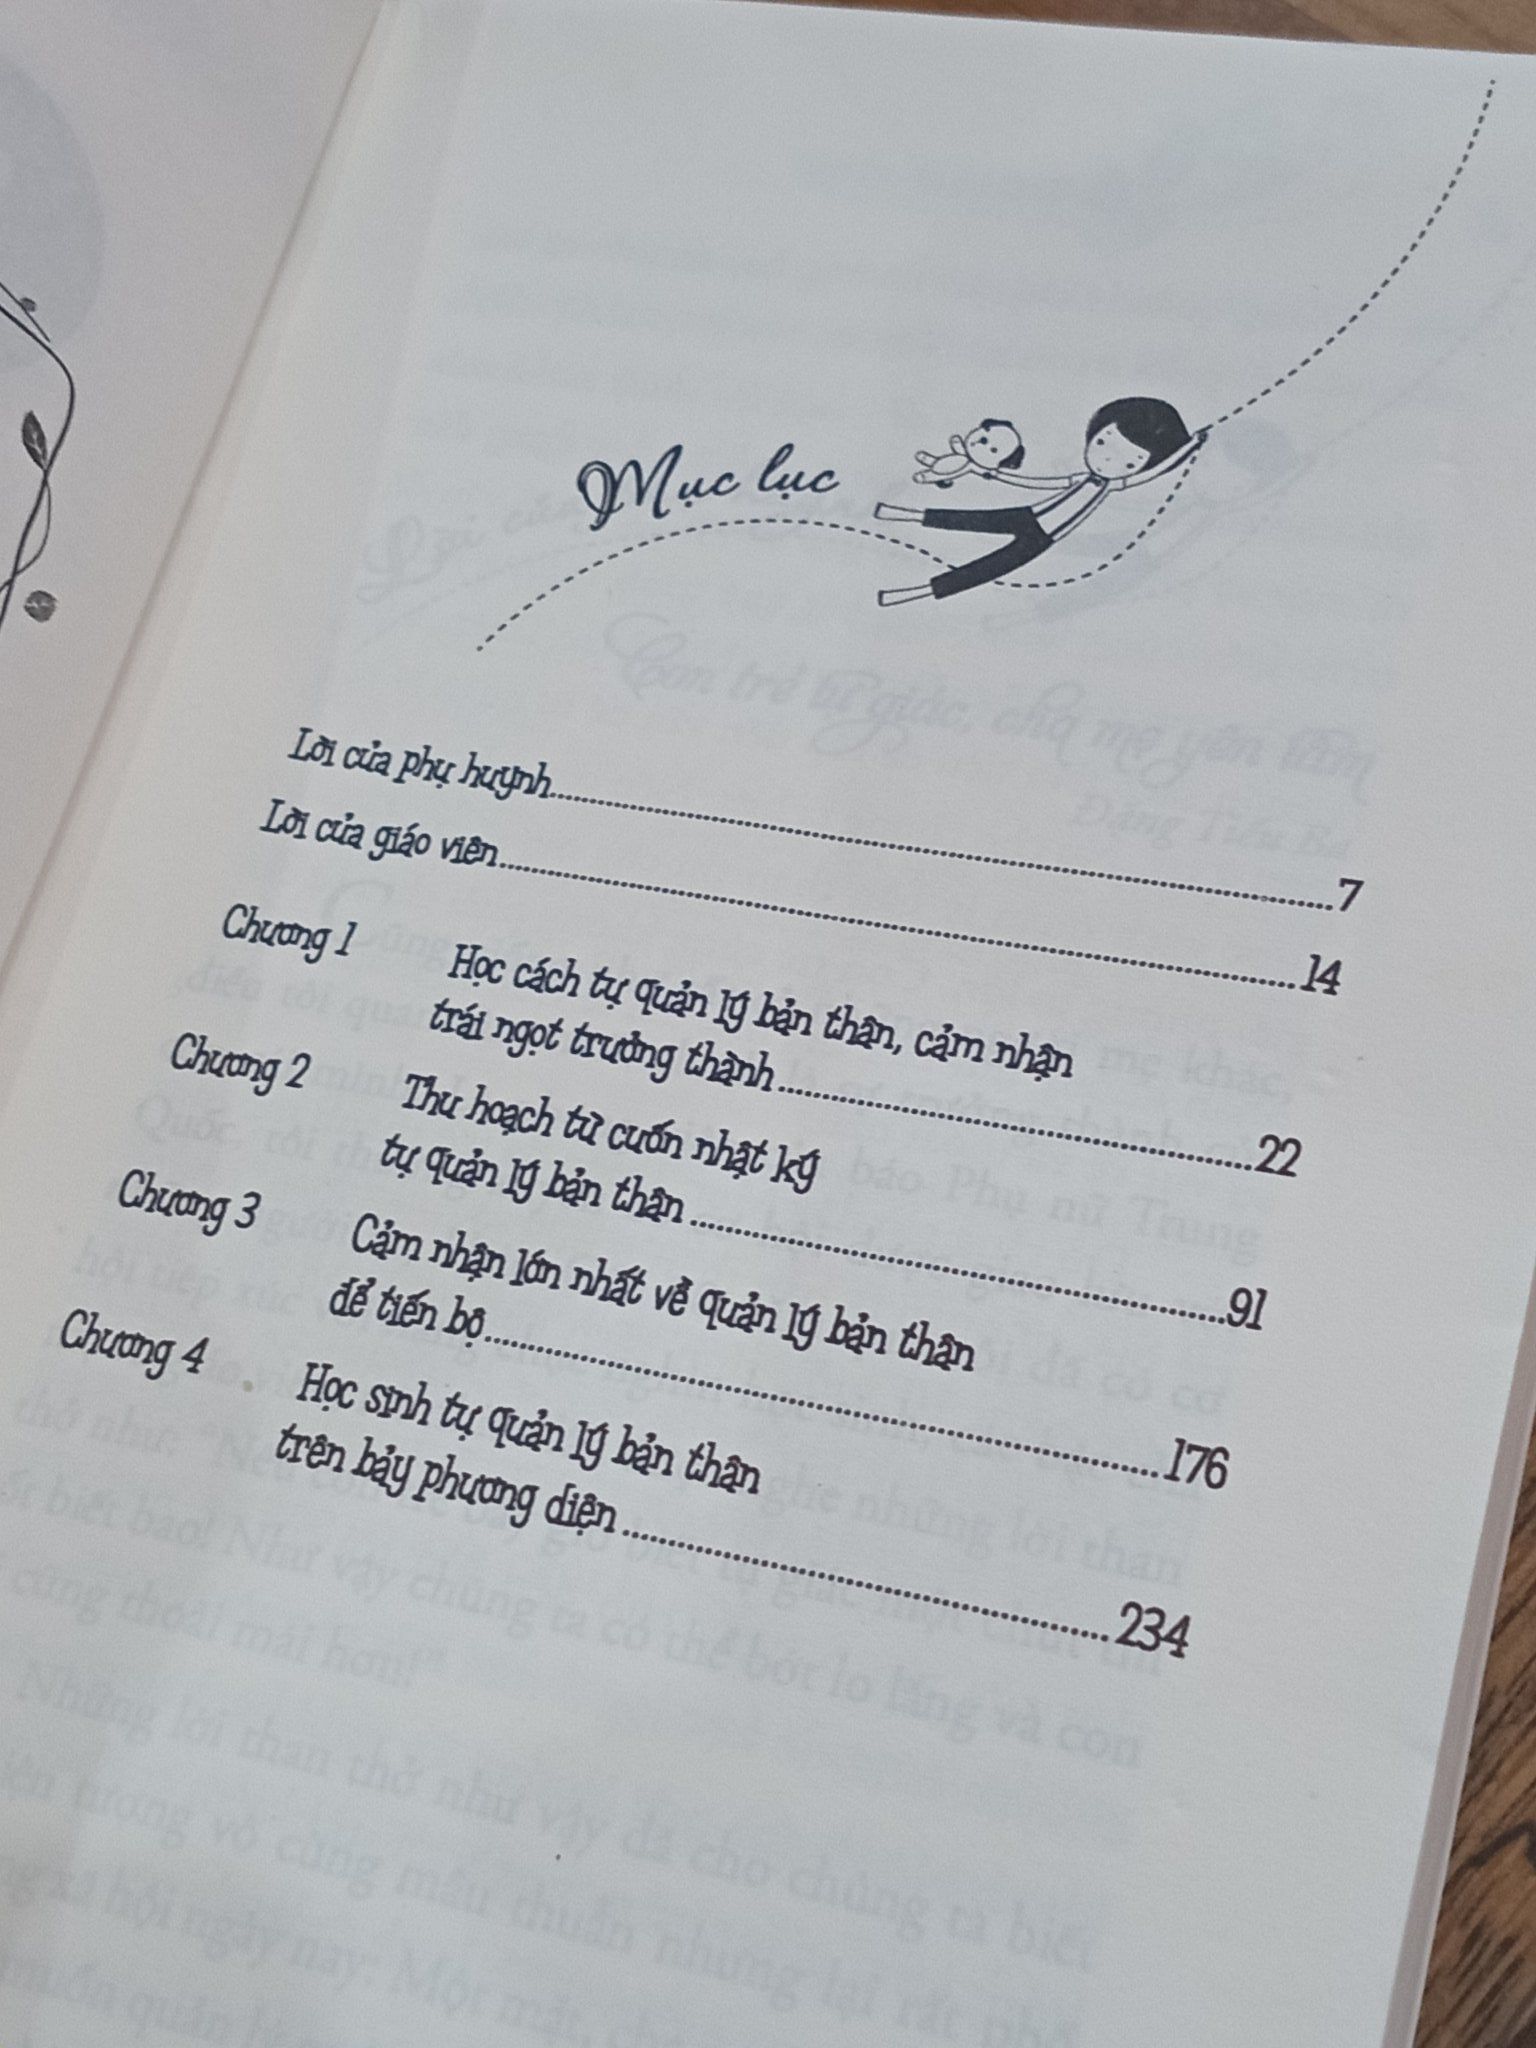 Mục lục
Lời của phụ huynh 7
Lời của giáo viên 14
Chương 1 Học cách tự quản lý bản thân, cảm nhận
trái ngọt trưởng thành 22
Chương 2 Thu hoạch từ cuốn nhật ký
tự quản lý bản thân 91
Chương 3 Cảm nhận lớn nhất về quản lý bản thân
để tiến bộ 176
Chương 4 Học sinh tự quản lý bản thân
trên bảy phương diện 234